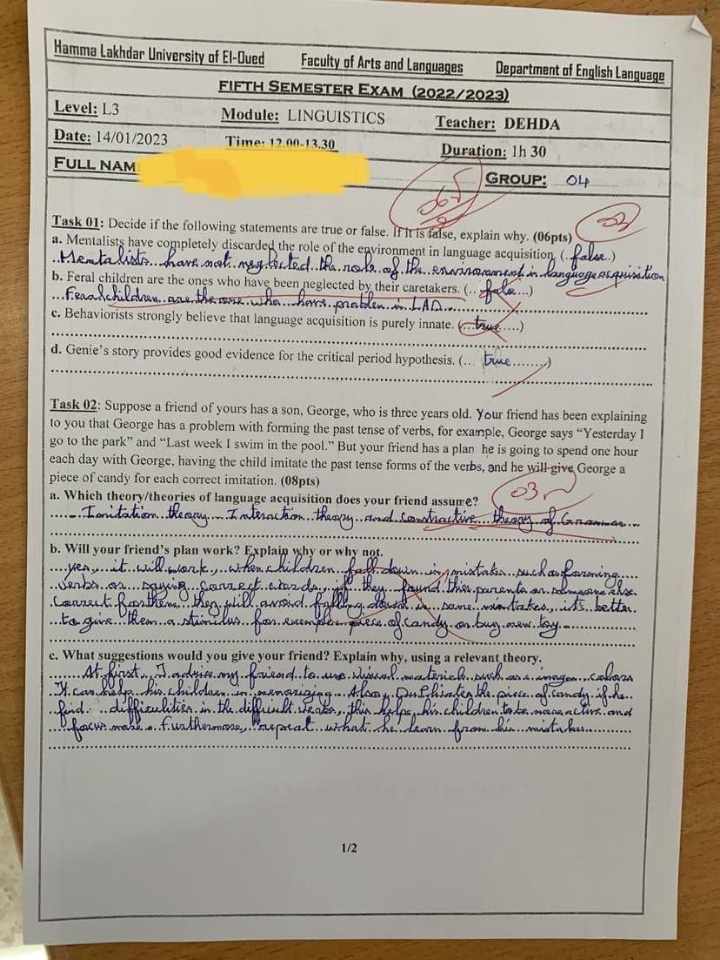 Hamma Lakhdar University of El-Oued Faculty of Arts and Languages Department of English Language
FIFTH SEMESTER EXAM (2022/2023)
Level: L3 Module: LINGUISTICS Teacher: DEHDA
Date: 14/01/2023 Time: 12.00-13.30 Duration: 1h 30
FULL NAM GROUP: 04
Task 01: Decide if the following statements are true or false. If it is false, explain why. (06pts) 03
a. Mentalists have completely discarded the role of the environment in language acquisition. (.false..)
..Mentalists...have not neglected the role of the environment in language acquisition
b. Feral children are the ones who have been neglected by their caretakers. (...false...)
...Feral children are the one who have problem in LAD...
c. Behaviorists strongly believe that language acquisition is purely innate. (...true....)
d. Genie's story provides good evidence for the critical period hypothesis. (... true........)
Task 02: Suppose a friend of yours has a son, George, who is three years old. Your friend has been explaining
to you that George has a problem with forming the past tense of verbs, for example, George says "Yesterday I
go to the park" and "Last week I swim in the pool." But your friend has a plan he is going to spend one hour
each day with George, having the child imitate the past tense forms of the verbs, and he will give George a
piece of candy for each correct imitation. (08pts)
a. Which theory/theories of language acquisition does your friend assume? 03
Imitation theory... Interaction theory and constructive theory of Grammar...
b. Will your friend's plan work? Explain why or why not.
yes, it will work, when children fall down in mistakes such as forming
verbs or saying correct words, if they found their parents or someone else
correct for them they will avoid falling down in same mistakes, it's better
to give them a stimulus for example piece of candy or buy new toy
c. What suggestions would you give your friend? Explain why, using a relevant theory.
At first, I advise my friend to use visual materials such as images, colors
It can help his children in memorizing. Also, the piece of candy if he
find difficulities in the difficult verbs, this helps his children to be more active and
focus more. Furthermore, repeat what he learn from his mistakes
1/2